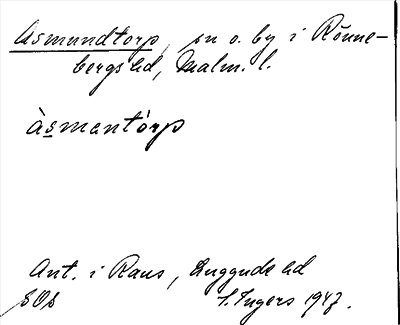 Asmundtorp, sn o. by i Rönne-
bergs hd, Malm. l.
àsmantórp
Ant. i Raus, Luggude hd
SOs I. Ingers 1947.